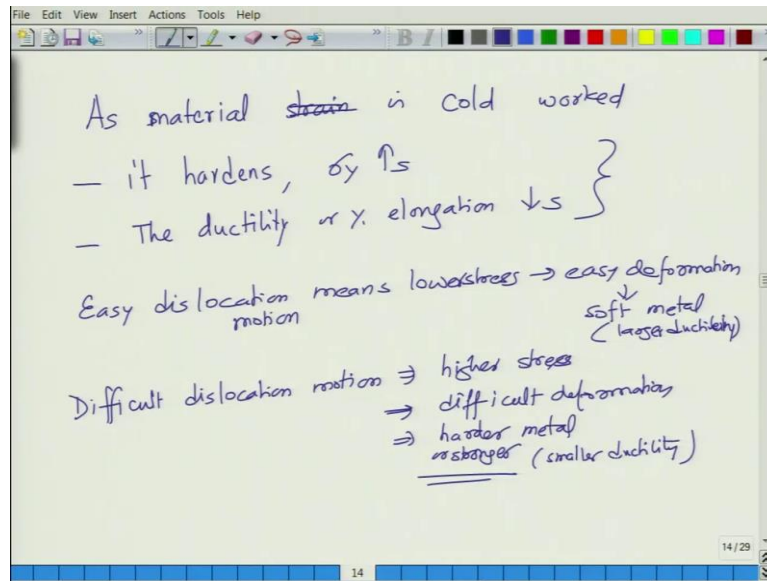 File Edit View Insert Actions Tools Help
As material strain is cold worked
— it hardens, σy ↑s
— The ductility or % elongation ↓s
Easy dislocation motion means lower stress → easy deformation
↓
soft metal
(larger ductility)
Difficult dislocation motion ⇒ higher stress
⇒ difficult deformation
⇒ harder metal
or stronger (smaller ductility)
14/29
14